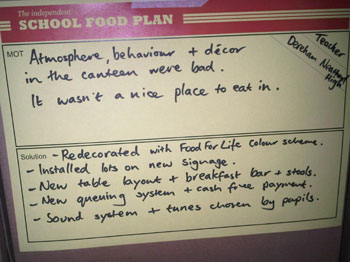 The independent
SCHOOL FOOD PLAN
Teacher
Dereham Neatherd
High
MOT Atmosphere, behaviour + décor
in the canteen were bad.
It wasn't a nice place to eat in.
Solution - Redecorated with Food For Life colour scheme.
- Installed lots on new signage.
- New table layout + breakfast bar + stools.
- New queuing system + cash free payment.
- Sound system + tunes chosen by pupils.